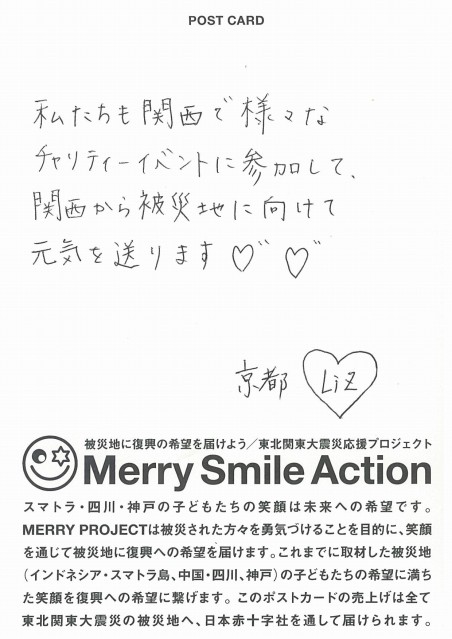 POST CARD
私たちも関西で様々な
チャリティーイベントに参加して、
関西から被災地に向けて
元気を送ります♡゛♡゛
京都 LiZ
被災地に復興の希望を届けよう／東北関東大震災応援プロジェクト
Merry Smile Action
スマトラ・四川・神戸の子どもたちの笑顔は未来への希望です。
MERRY PROJECTは被災された方々を勇気づけることを目的に、笑顔
を通じて被災地に復興への希望を届けます。これまでに取材した被災地
（インドネシア・スマトラ島、中国・四川、神戸）の子どもたちの希望に満ち
た笑顔を復興への希望に繋げます。このポストカードの売上げは全て
東北関東大震災の被災地へ、日本赤十字社を通して届けられます。